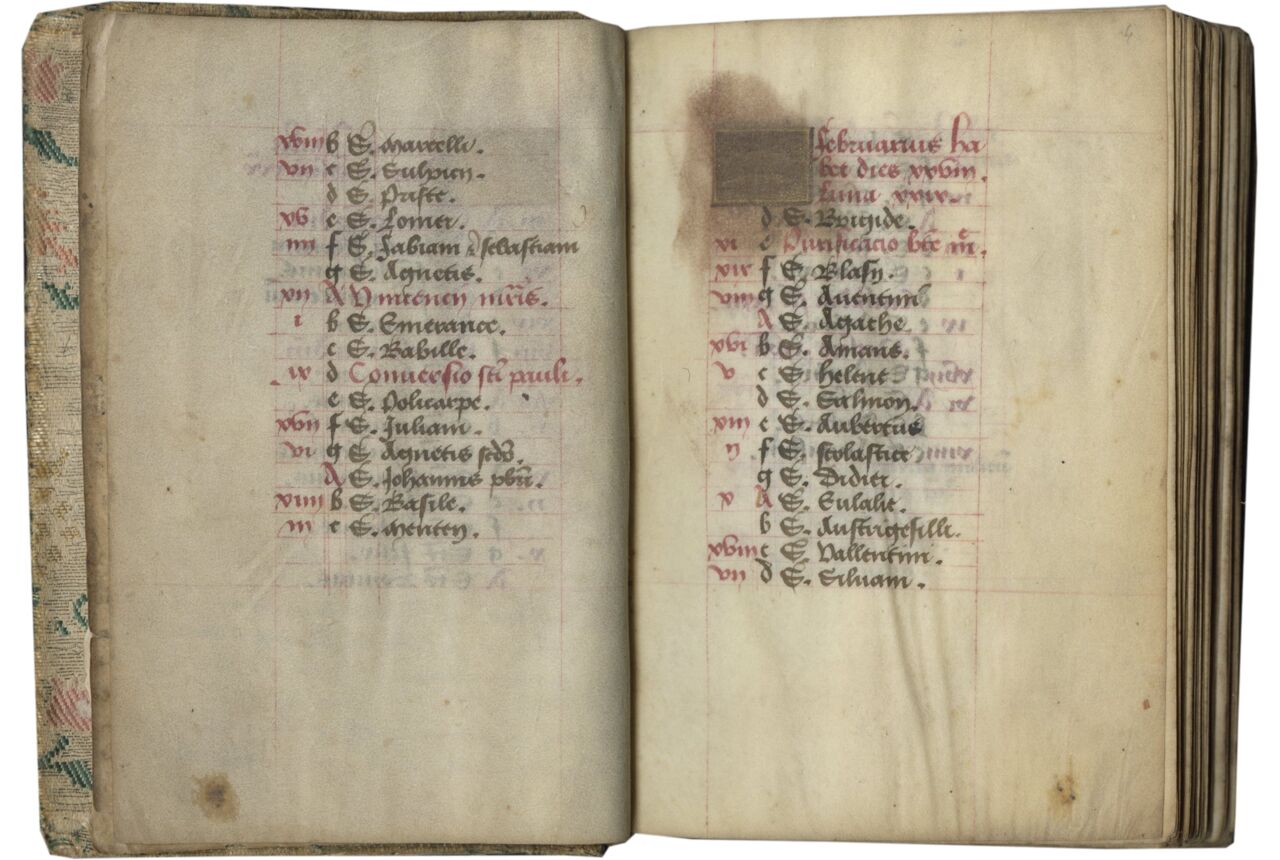 xviii b S. Marcelli.
vii c S. Sulpicij.
d S. Prisce.
xv e S. Lomer.
iiii f S. Fabiani & sebastiani
g S. Agnetis.
xii A Vincencij mr̄is.
i b S. Emerance.
c S. Babille.
ix d Conversio sc̄i pauli.
e S. Policarpe.
xvii f S. Juliani.
vi g S. Agnetis scd̄o.
A S. Johannis pbr̄i.
xiiii b S. Basile.
iii c S. Metten.
februarius ha
bet dies xxviii.
luna xxix.
d S. Brigide.
xi e Purificacio bt̄e m̄.
xix f S. Blasij.
viii g S. Auentini
A S. Agathe.
xvi b S. Amans.
v c S. helene
d S. Salmon.
xiii e S. Aubertus
ii f S. scolastice
g S. Didier.
x A S. Eulalie.
b S. Austrigesilli.
xviii c S. Vallentini.
vii d S. Siluani.
4